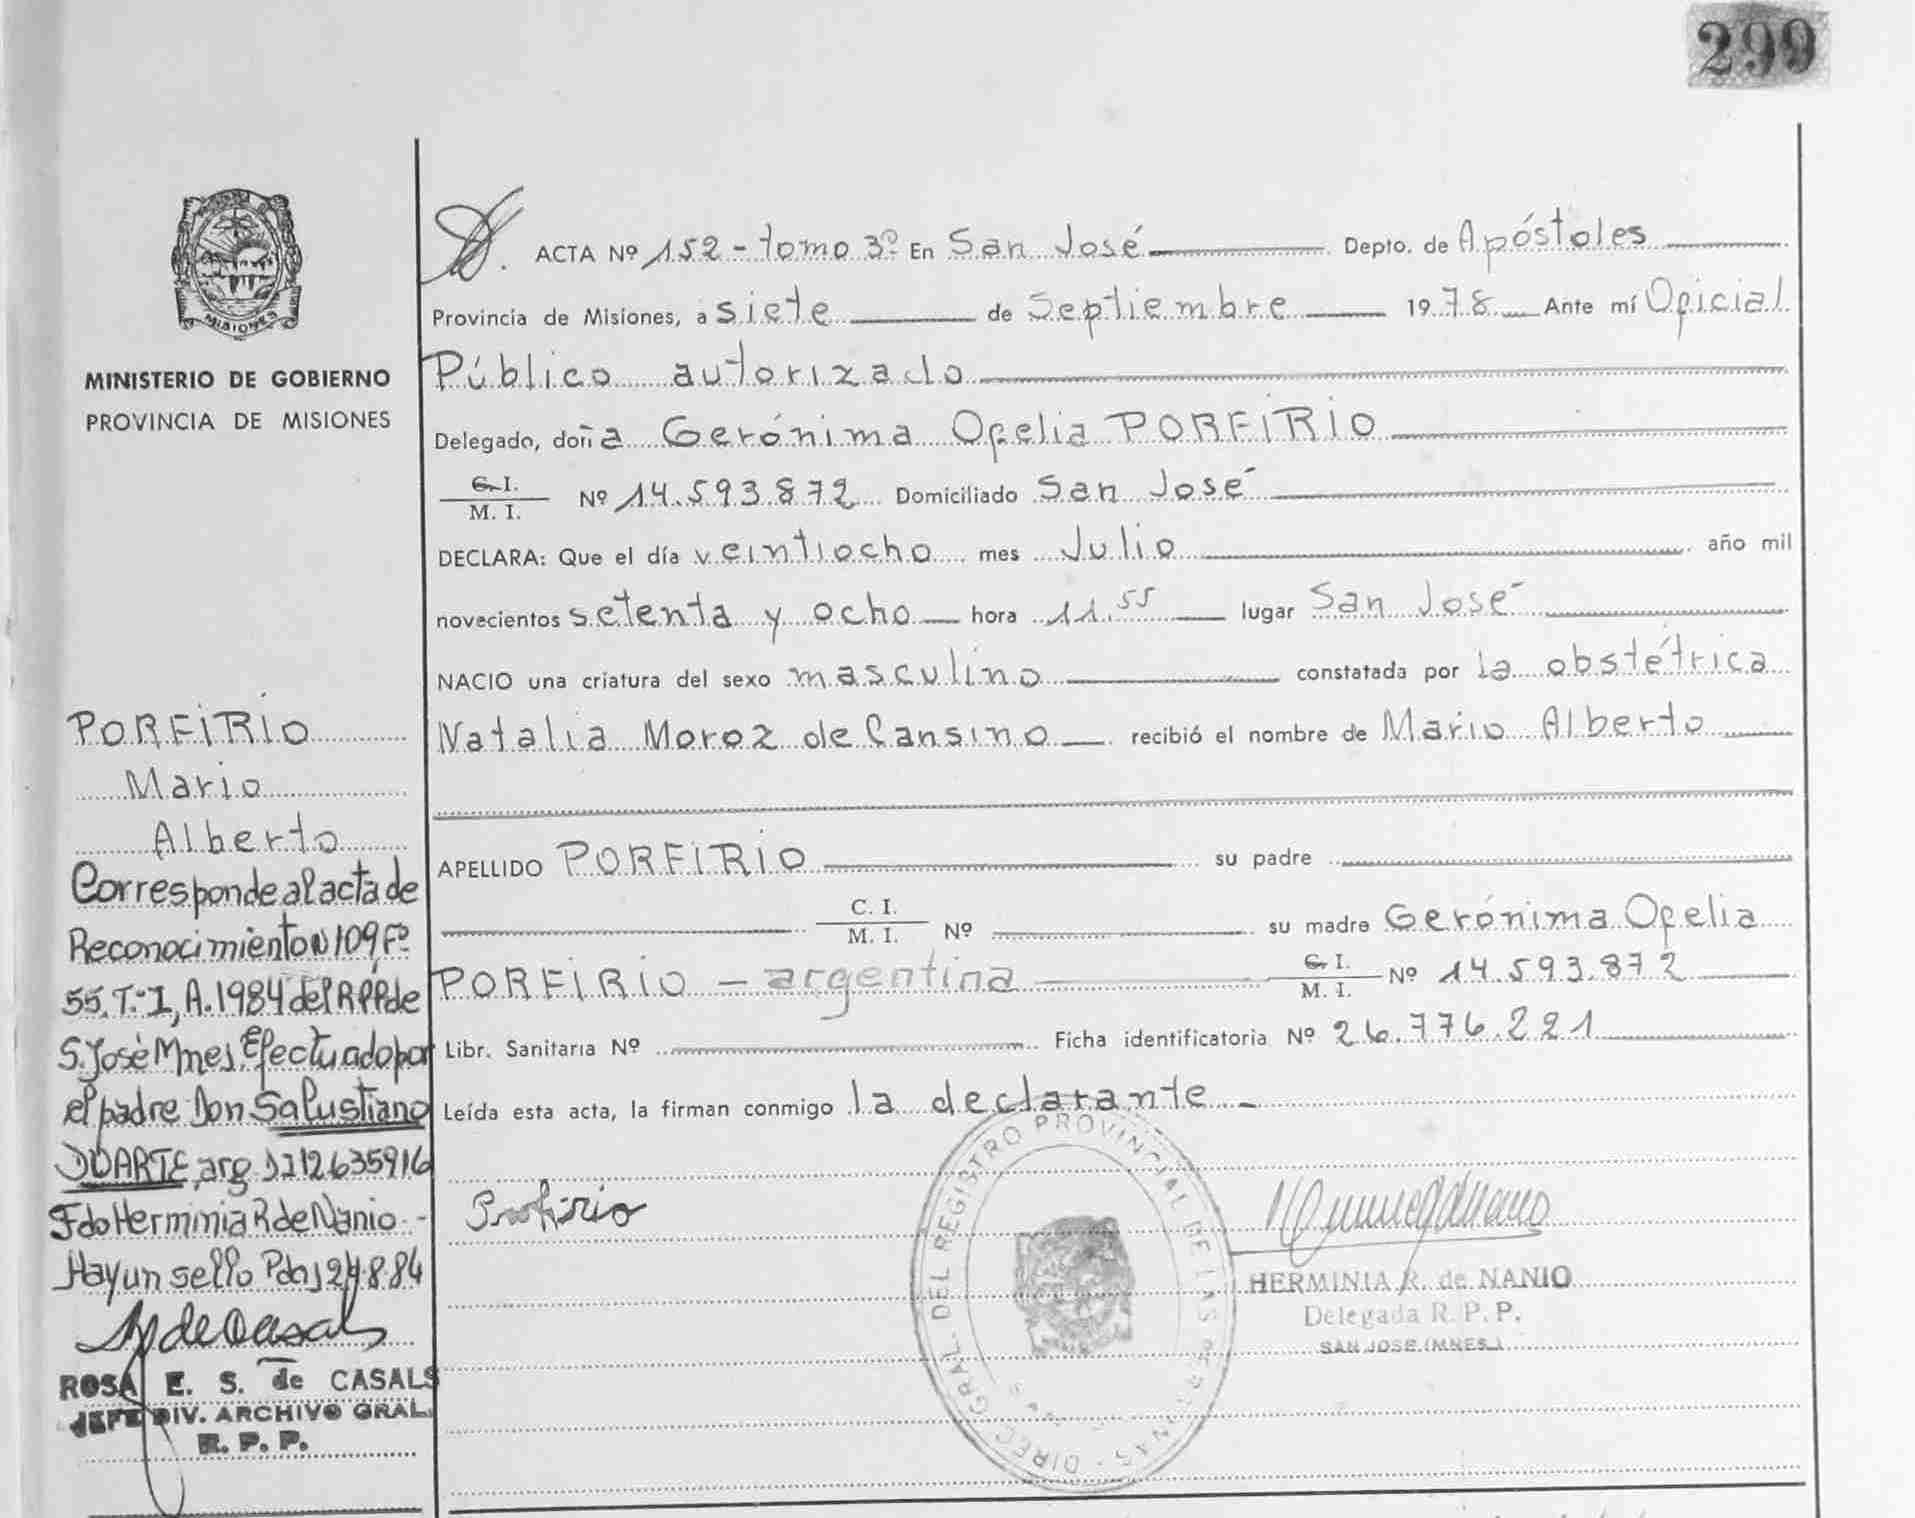 299
MISIONES
MINISTERIO DE GOBIERNO
PROVINCIA DE MISIONES
PORFIRIO
Mario
Alberto
Corresponde al acta de
Reconocimiento N 109 Fº
55. T. I, A. 1984 del RPP de
S. José Mnes. Efectuado por
el padre Don Salustiano
DUARTE, arg. 12635916
Fdo Herminia R de Nanio -
Hay un sello Pdas 24.8.84
ROSA E. S. de CASALS
JEFE DIV. ARCHIVO GRAL.
R. P. P.
ACTA Nº 152 - tomo 3º En San José Depto. de Apóstoles
Provincia de Misiones, a siete de Septiembre 1978 Ante mí Oficial
Público autorizado
Delegado, doña Gerónima Ofelia PORFIRIO
C. I.
M. I. Nº 14.593.872 Domiciliado San José
DECLARA: Que el día veintiocho mes Julio año mil
novecientos setenta y ocho hora 11.55 lugar San José
NACIO una criatura del sexo masculino constatada por la obstétrica
Natalia Moroz de Cansino recibió el nombre de Mario Alberto
APELLIDO PORFIRIO su padre
C. I.
M. I. Nº su madre Gerónima Ofelia
PORFIRIO - argentina C. I.
M. I. Nº 14.593.872
Libr. Sanitaria Nº Ficha identificatoria Nº 26.776.221
Leída esta acta, la firman conmigo la declarante -
Porfirio
DIREC. GRAL. DEL REGISTRO PROVINCIAL DE LAS PERSONAS
HERMINIA R. de NANIO
Delegada R. P. P.
SAN JOSE (MNES.)